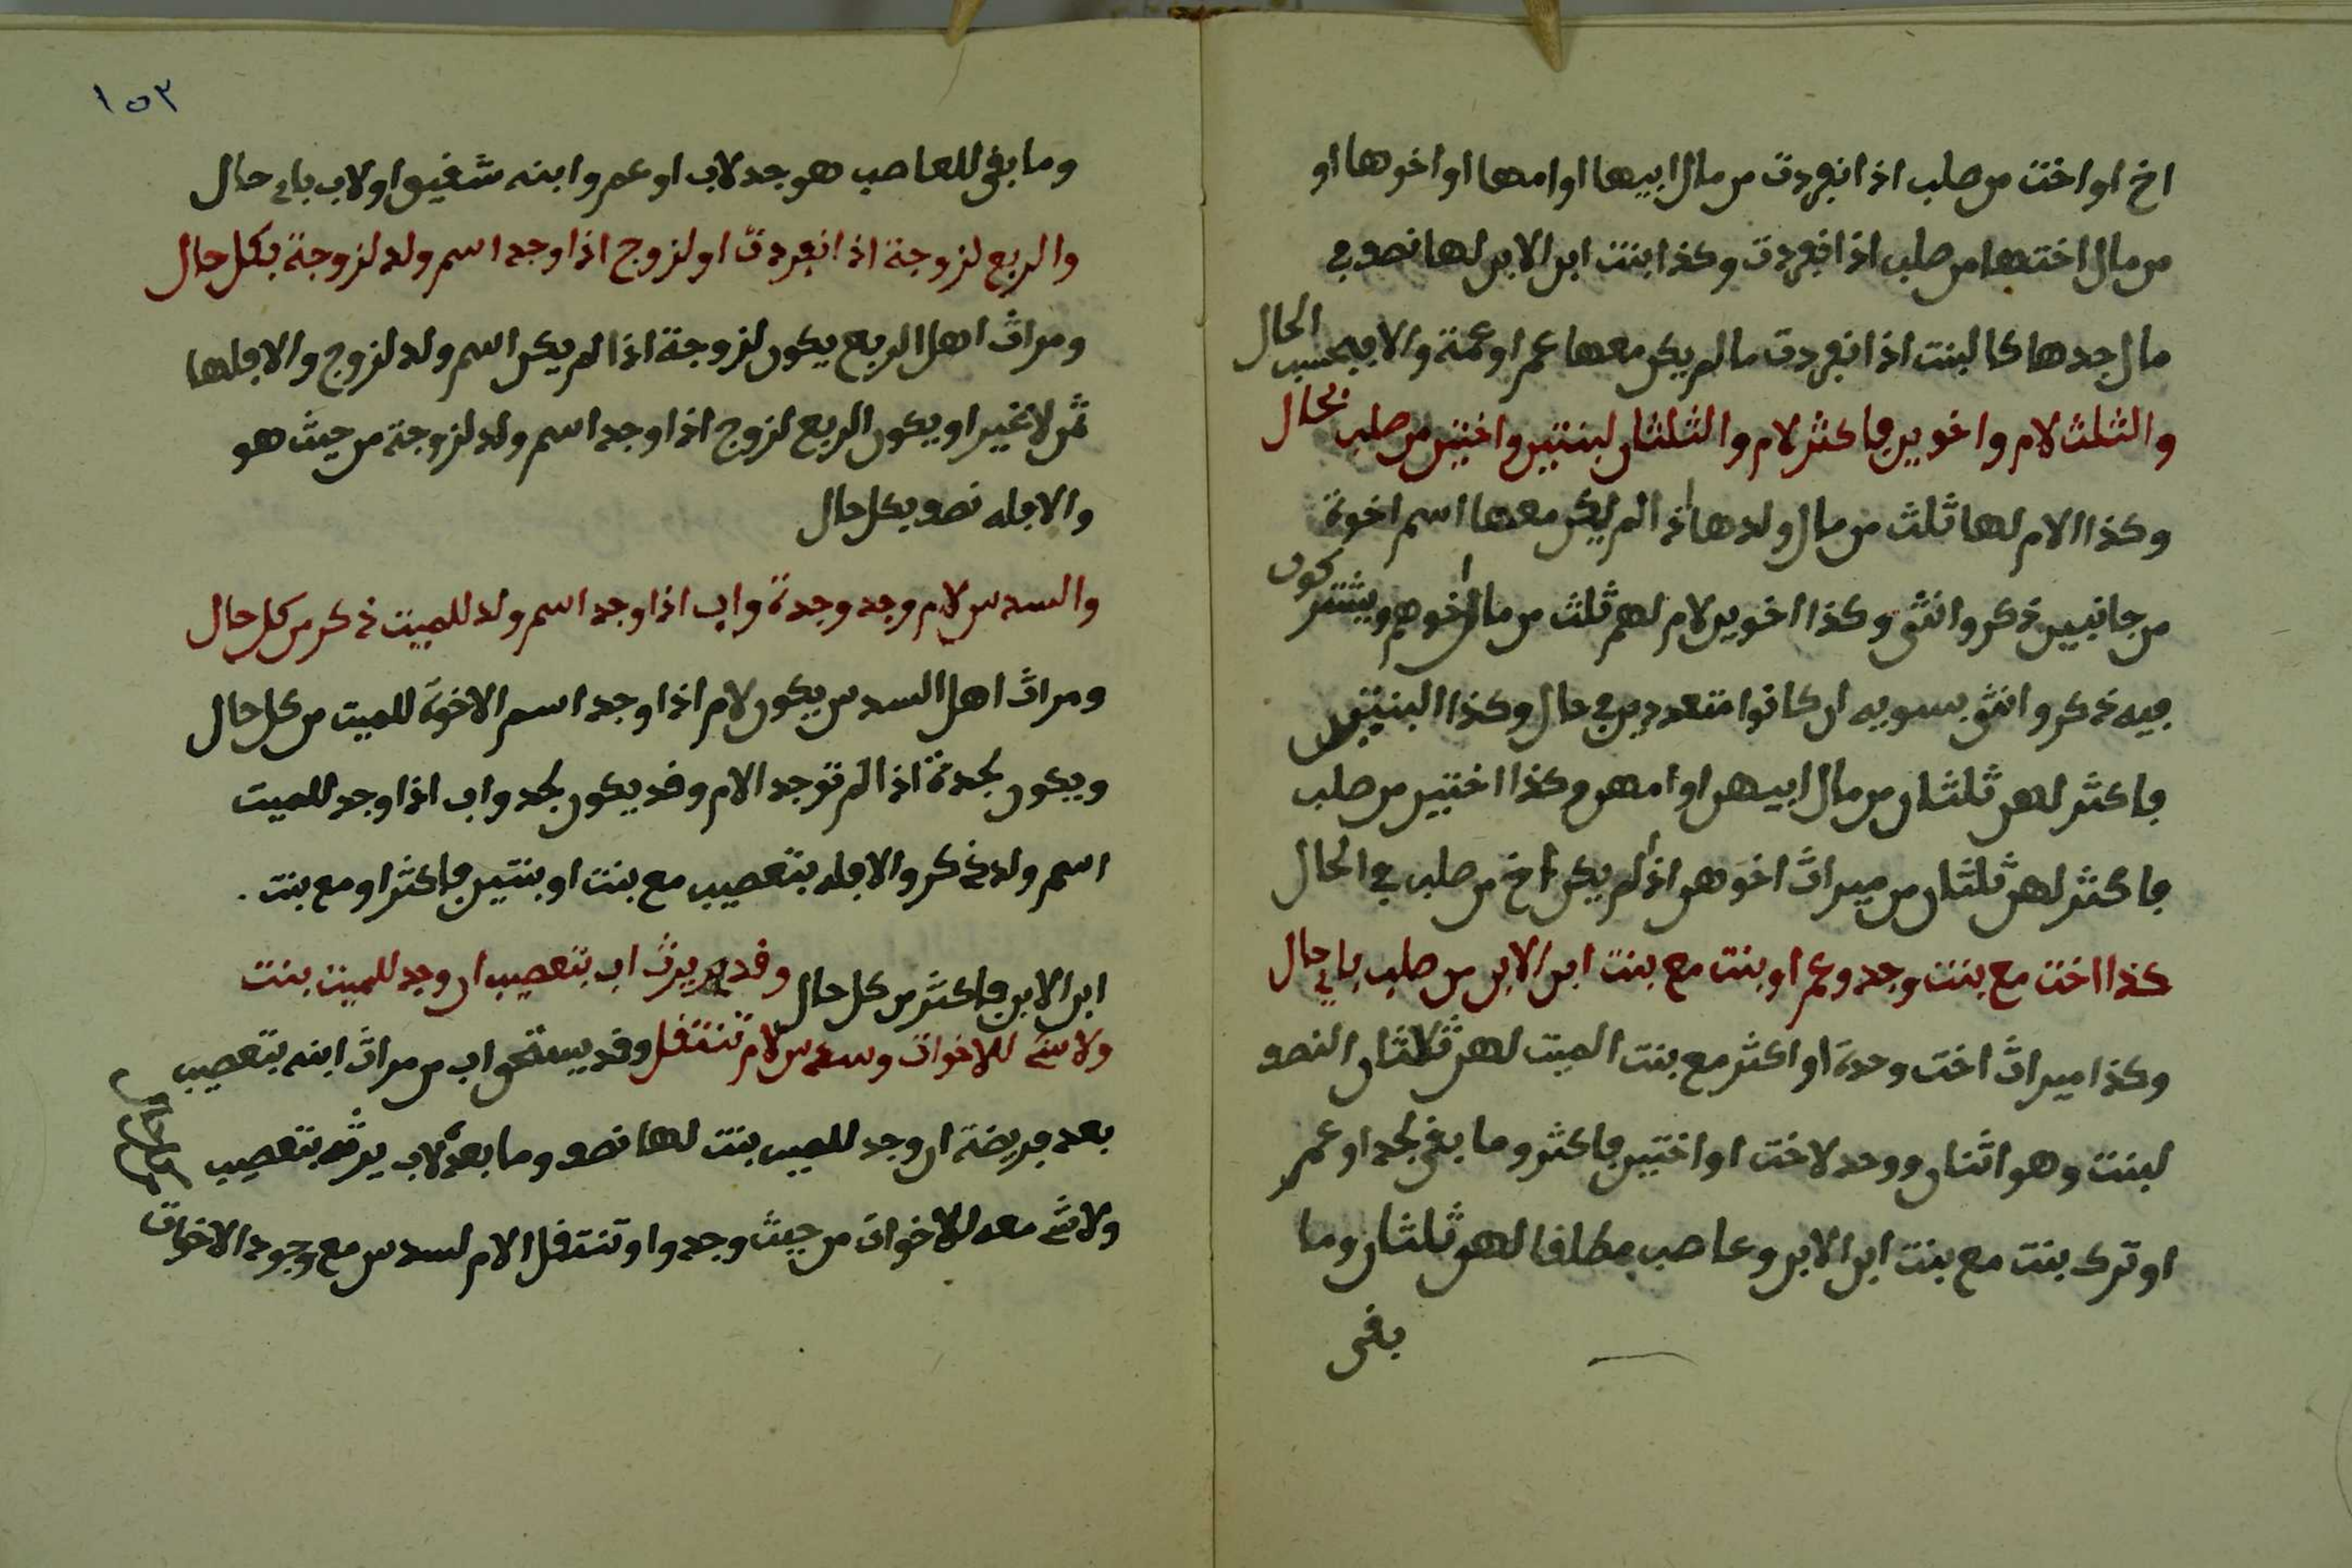 اخ او اخت من صلب اذا انفردت من مال ابيها او امها او اخوها او
من مال اختها من صلب اذا انفردت وكذا بنت ابن الابن لها نصف في
مال جدها كالبنت اذا انفردت ما لم يكن معها عم او عمة والا فبحسب الحال
والثلث لام واخوين فاكثر لام والثلثان لبنتين واختين من صلب بحال
وكذا الام لها ثلث من مال ولدها اذا لم يكن معها اسم اخوة
من جانبين ذكر وانثى وكذا اخوين لام لهم ثلث من مال اخوهم ويشتركون
فيه ذكر وانثى بسويه ان كانوا متعددين في حال وكذا البنتين
فاكثر لهن ثلثان من مال ابيهن او امهن وكذا اختين من صلب
فاكثر لهن ثلثان من ميراث اخوهن اذا لم يكن اخ من صلب في الحال
كذا اخت مع بنت وجد وعم او بنت مع بنت ابن الابن من صلب باي حال
وكذا ميراث اخت وحدة او اكثر مع بنت الميت لهن ثلاثان النصف
لبنت وهو اثنان ووحد لاخت او اختين فاكثر وما بقى لجد او عم
او ترك بنت مع بنت ابن الابن وعاصب مطلقا لهن ثلثان وما
بقى
١٥٣
وما بقى للعاصب هو جد لاب او عم وابنه شقيق او لاب باي حال
والربع لزوجة اذا انفردت او لزوج اذا وجد اسم ولد لزوجة بكل حال
ومراث اهل الربع يكون لزوجة اذا لم يكن اسم ولد لزوج والا فلها
ثمن لا غير او يكون الربع لزوج اذا وجد اسم ولد لزوجة من حيث هو
والا فله نصف بكل حال
والسدس لام وجد وجدة واب اذا وجد اسم ولد للميت ذكر من كل حال
ومراث اهل السدس يكون لام اذا وجد اسم الاخوة للميت من كل حال
ويكون لجدة اذا لم توجد الام وقد يكون لجد واب اذا وجد للميت
اسم ولد ذكر والا فله بتعصيب مع بنت او بنتين فاكثر او مع بنت .
ابن الابن فاكثر من كل حال وقد يرث اب بتعصيب ان وجد للميت بنت
ولا شي للاخوات وسدس لام تنتقل وقد يستحق اب من مراث ابنه بتعصيب
بعد فريضة ان وجد للميت بنت لها نصف وما بعده لاب يرثه بتعصيب
ولا شي معه للاخوات من حيث وجدوا وتنتقل الام لسدس مع وجود الاخوات